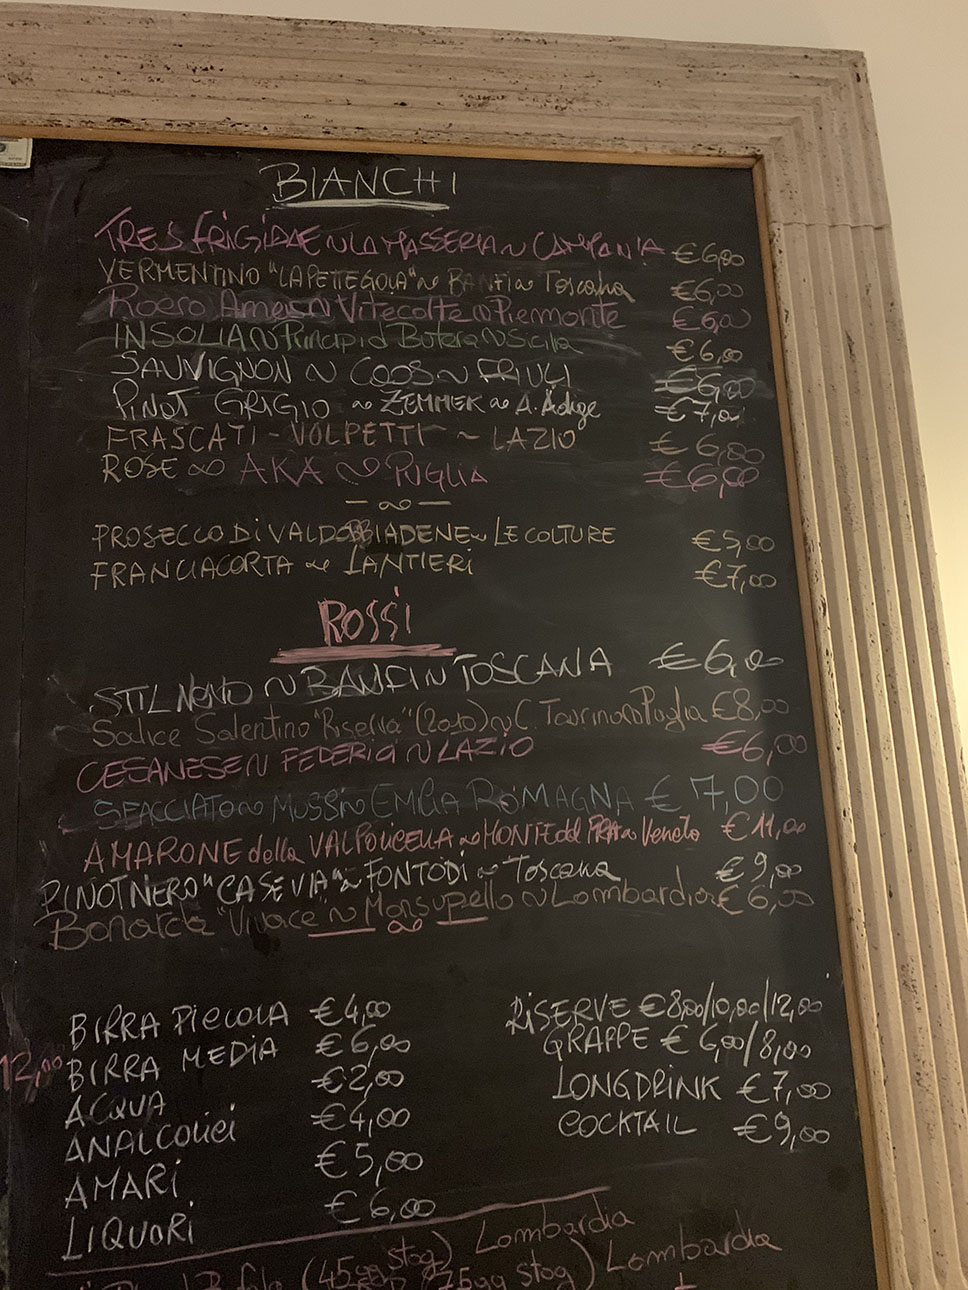 BIANCHI
TRES FRIGIDAE ~ LA MASSERIA ~ CAMPANIA €6,00
VERMENTINO "LA PETTEGOLA" ~ BANFI ~ Toscana €6,00
Roero Arneis ~ Vitecolte ~ Piemonte €6,00
INSOLIA ~ Principi d Butera ~ Sicilia €6,00
SAUVIGNON ~ COOS ~ FRIULI €6,00
PINOT GRIGIO ~ ZEMMER ~ A. Adige €7,00
FRASCATI - VOLPETTI ~ LAZIO €6,00
ROSE ~ AKA ~ PUGLIA €6,00
PROSECCO Di VALDOBBIADENE ~ LE COLTURE €5,00
FRANCIACORTA ~ LANTIERI €7,00
ROSSI
STILNOVO ~ BANFI ~ TOSCANA €6,00
Salice Salentino "Riserva" (2010) ~ C. Taurino ~ Puglia €8,00
CESANESE ~ FEDERICI ~ LAZIO €6,00
SFACCIATO ~ MUSSI ~ EMILIA ROMAGNA €7,00
AMARONE della VALPOLICELLA ~ MONTE del FRA ~ Veneto €11,00
PINOT NERO "CASE VIA" ~ FONTODI ~ Toscana €9,00
Bonarda "Vivace" ~ Monsupello ~ Lombardia €6,00
BIRRA PICCOLA €4,00
12,00 BIRRA MEDIA €6,00
ACQUA €2,00
ANALCOLICI €4,00
AMARI €5,00
LIQUORI €6,00
RISERVE €8,00/10,00/12,00
GRAPPE €6,00/8,00
LONGDRINK €7,00
COCKTAIL €9,00
(45gg stag) Lombardia
75gg stag) Lombardia